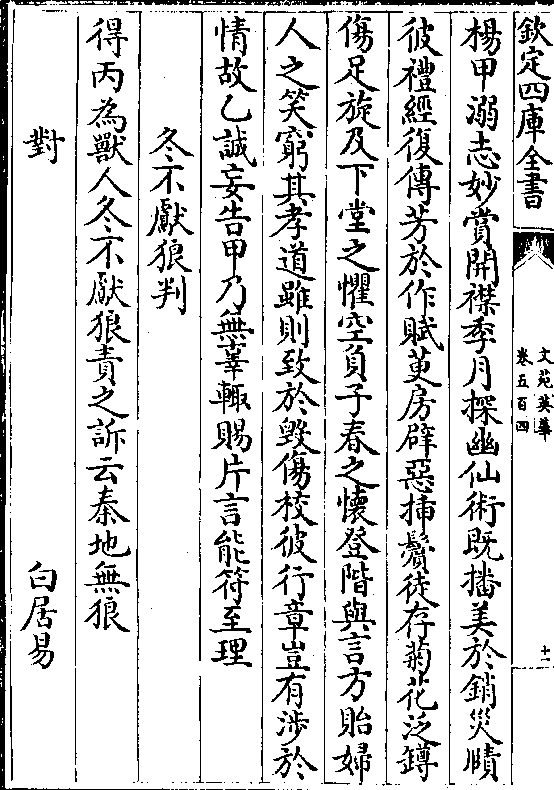 欽定四庫全書
文苑英華
卷五百四
十一
楊甲溺志妙賞開襟季月探幽仙術既播美於銷災賾
彼禮經復傳芳於作賦萸房辟惡揷鬢徒存菊花泛鐏
傷足旋及下堂之懼空負子春之懐登階與言方貽婦
人之笑窮其孝道雖則致於毁傷校彼行章豈有涉於
情故乙誠妄告甲乃無辜輙賜片言能符至理
冬不獻狼判
得丙為獸人冬不獻狼責之訴云秦地無狼
對
白居易